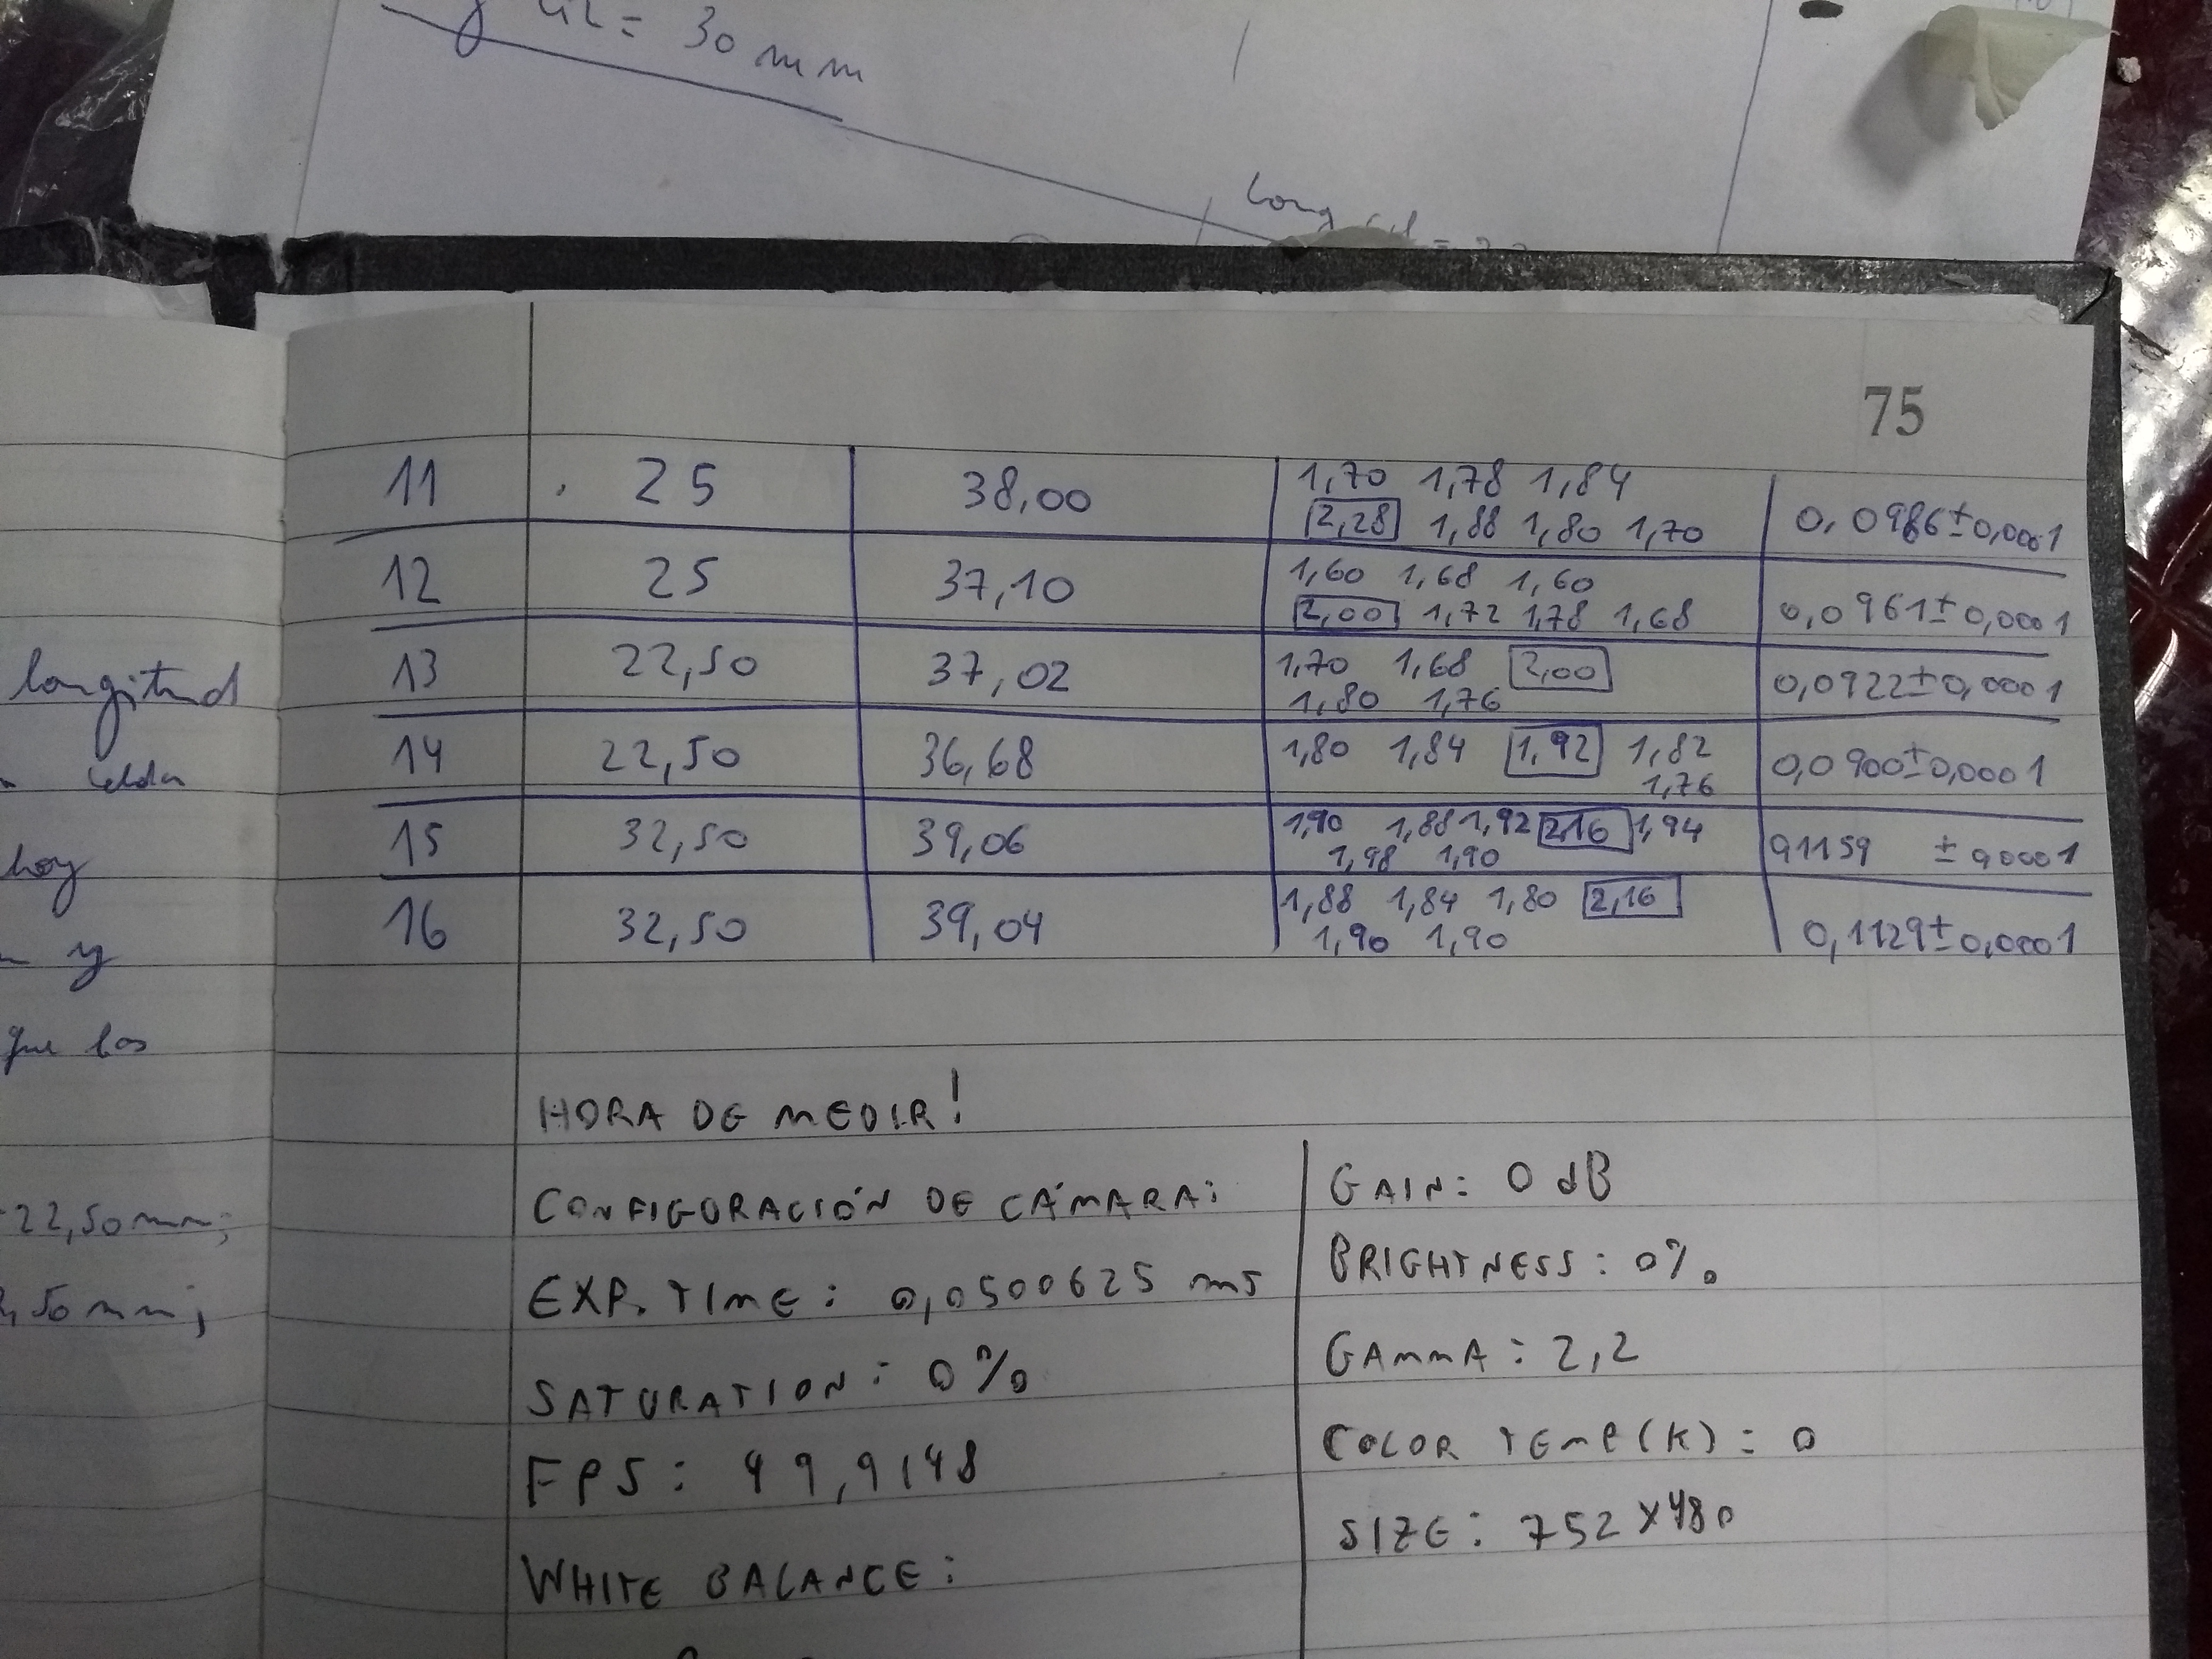 = 30 mm
long
75
11 25 38,00 1,70 1,78 1,84
2,28 1,88 1,80 1,70 0,0986±0,0001
12 25 37,10 1,60 1,68 1,60
2,00 1,72 1,78 1,68 0,0961±0,0001
13 22,50 37,02 1,70 1,68 2,00
1,80 1,76 0,0922±0,0001
14 22,50 36,68 1,80 1,84 1,92 1,82
1,76 0,0900±0,0001
15 32,50 39,06 1,90 1,88 1,92 2,16 1,94
1,98 1,90 0,1159 ± 0,0001
16 32,50 39,04 1,88 1,84 1,80 2,16
1,90 1,90 0,1129±0,0001
longitud
celda
hoy
y
que los
22,50 mm;
,50 mm;
HORA DE MEDIR!
CONFIGURACIÓN DE CÁMARA:
EXP. TIME: 0,0500625 ms
SATURATION: 0%
FPS: 49,9148
WHITE BALANCE:
GAIN: 0 dB
BRIGHTNESS: 0%
GAMMA: 2,2
COLOR TEMP(K): 0
SIZE: 752x480